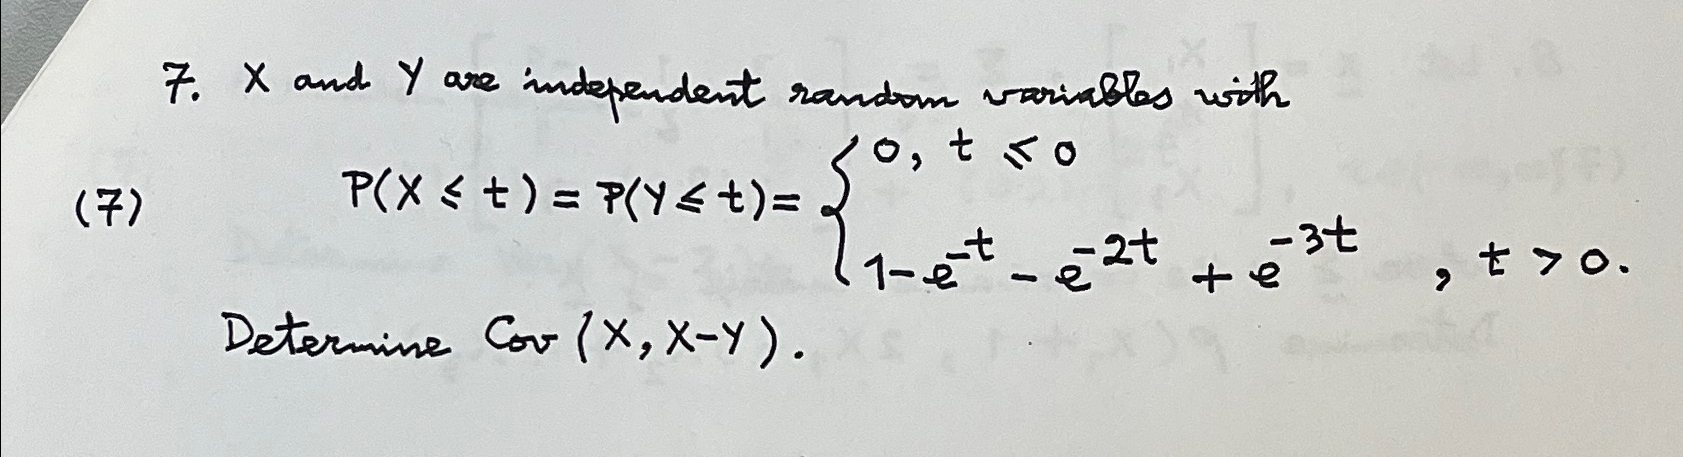 7. X and Y are independent random variables with
(7) P(X ≤ t) = P(Y ≤ t) = { 0, t ≤ 0
1 - e^{-t} - e^{-2t} + e^{-3t}, t > 0.
Determine Cov (X, X-Y).